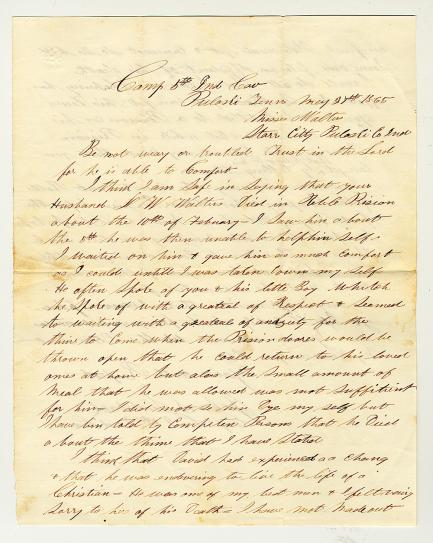 Camp 5th Ind Cav
Pulaski Tenn May 27th 1865
Misses Walters
Starr City Pulaski Co Ind
Be not weary or troubled Trust in the Lord
for he is able to Comfort
I think I am Saf in Saying that your
Husband W Walters Died in Reble Prision
about the 10th of February - I Saw him about
the 8th he was then unable to helphim Self
I waited on him & gave him as much comfort
as I could untill I was taken Down my Self
He often Spoke of you & his little Boy Whitch
he Spoke of with a greateal of Respect & Seamed
to waiting with a greateal of anxiuty for the
thime to Come when the Prision doares would be
thrown open that he could return to his loved
ones at home but alass the Small amount of
Meal that he was allowed was not Suffitient
for him - I did not Se him Dye my self but
I have bin told by Competen Persons that he Died
about the thime that I have Stated
I think that David had experienced a Chang
& that he was endevering to live the life of a
Christian - He was one of my best men & I felt very
Sorry to hear of his Death - I have not made out